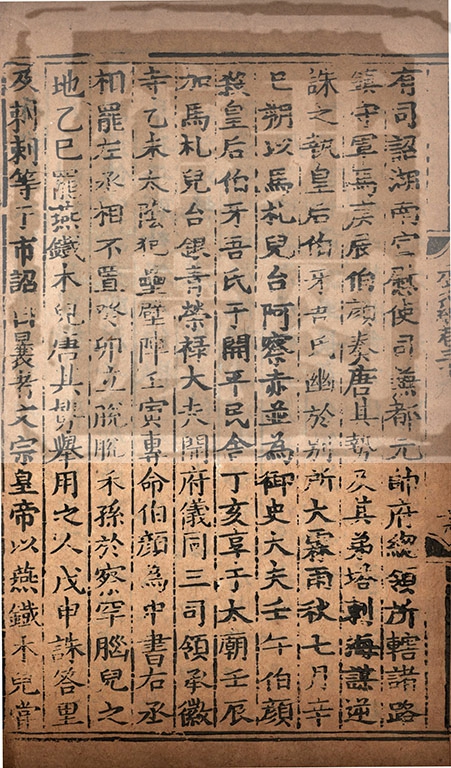 有司詔湖南宣慰使司兼都元帥府總領所轄諸路
鎮守軍馬庚辰伯顏奏唐其勢及其弟塔剌海謀逆
誅之執皇后伯牙吾氏幽於別所大霖雨秋七月辛
巳朔以馬札兒台阿察赤並為御史大夫壬午伯顏
弒皇后伯牙吾氏于開平民舍丁亥享于太廟壬辰
加馬札兒台銀青榮祿大夫開府儀同三司領承徽
寺乙未太陰犯壘壁陣壬寅專命伯顏為中書右丞
相罷左丞相不置癸卯立脫脫禾孫於察罕腦兒之
地乙巳罷燕鐵木兒唐其勢舉用之人戊申誅答里
及剌剌等于市詔曰曩者文宗皇帝以燕鐵木兒嘗